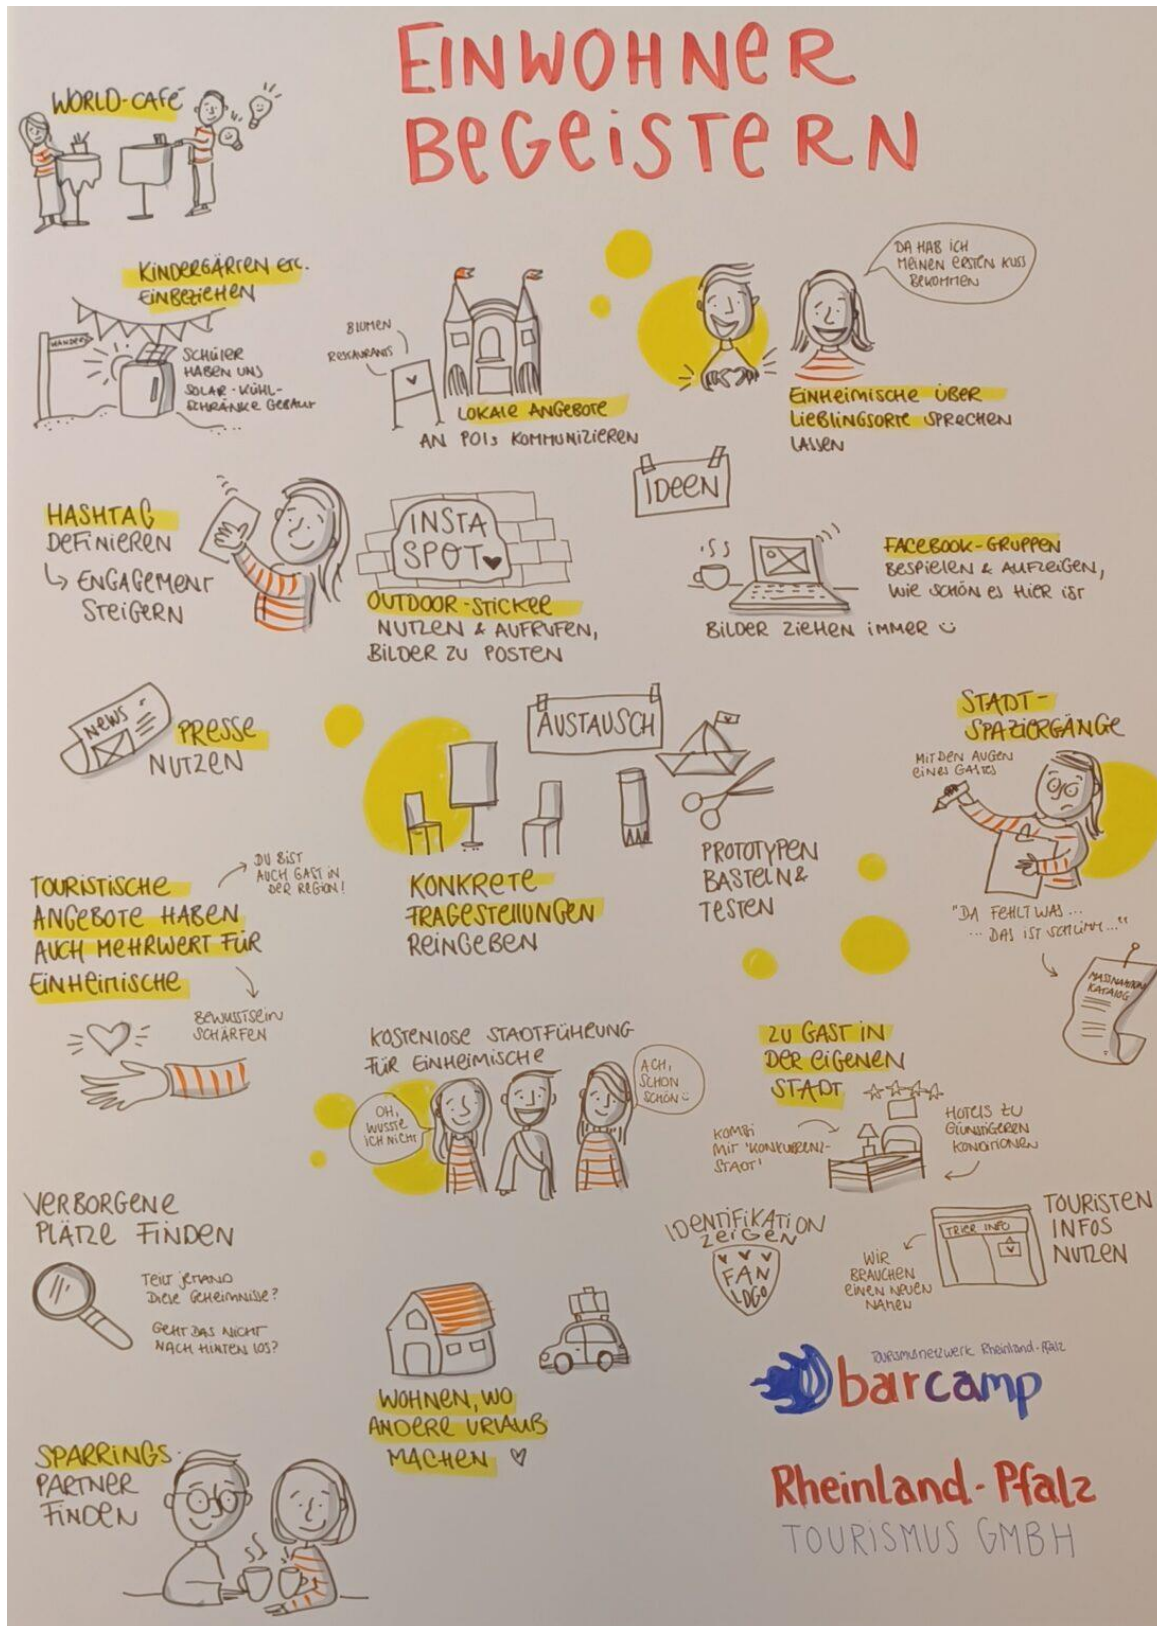 EINWOHNER
BEGEISTERN
WORLD-CAFÉ
KINDERGÄRTEN ETC.
EINBEZIEHEN
WANDERN
SCHÜLER
HABEN UNS
SOLAR-KÜHL-
SCHRÄNKE GEBAUT
BLUMEN
RESTAURANTS
LOKALE ANGEBOTE
AN POIs KOMMUNIZIEREN
DA HAB ICH
MEINEN ERSTEN KUSS
BEKOMMEN
EINHEIMISCHE ÜBER
LIEBLINGSORTE SPRECHEN
LASSEN
IDEEN
HASHTAG
DEFINIEREN
↳ ENGAGEMENT
STEIGERN
INSTA
SPOT
OUTDOOR-STICKER
NUTZEN & AUFRUFEN,
BILDER ZU POSTEN
FACEBOOK-GRUPPEN
BESPIELEN & AUFZEIGEN,
WIE SCHÖN ES HIER IST
BILDER ZIEHEN IMMER
NEWS
PRESSE
NUTZEN
AUSTAUSCH
KONKRETE
FRAGESTELLUNGEN
REINGEBEN
PROTOTYPEN
BASTELN &
TESTEN
STADT-
SPAZIERGÄNGE
MIT DEN AUGEN
EINES GASTES
"DA FEHLT WAS ...
... DAS IST SCHLIMM ..."
MASSNAHMEN
KATALOG
TOURISTISCHE
ANGEBOTE HABEN
AUCH MEHRWERT FÜR
EINHEIMISCHE
DU BIST
AUCH GAST IN
DER REGION!
BEWUSSTSEIN
SCHÄRFEN
KOSTENLOSE STADTFÜHRUNG
FÜR EINHEIMISCHE
OH,
WUSSTE
ICH NICHT
ACH,
SCHON
SCHÖN
ZU GAST IN
DER EIGENEN
STADT
KOMBI
MIT 'KONKURRENZ-
STADT'
HOTELS ZU
GÜNSTIGEREN
KONDITIONEN
VERBORGENE
PLÄTZE FINDEN
TEILT JEMAND
DIESE GEHEIMNISSE?
GEHT DAS NICHT
NACH HINTEN LOS?
IDENTIFIKATION
ZEIGEN
FAN
LOGO
TRIER INFO
TOURISTEN
INFOS
NUTZEN
WIR
BRAUCHEN
EINEN NEUEN
NAMEN
WOHNEN, WO
ANDERE URLAUB
MACHEN
SPARRINGS-
PARTNER
FINDEN
Tourismusnetzwerk Rheinland-Pfalz
barcamp
Rheinland-Pfalz
TOURISMUS GMBH